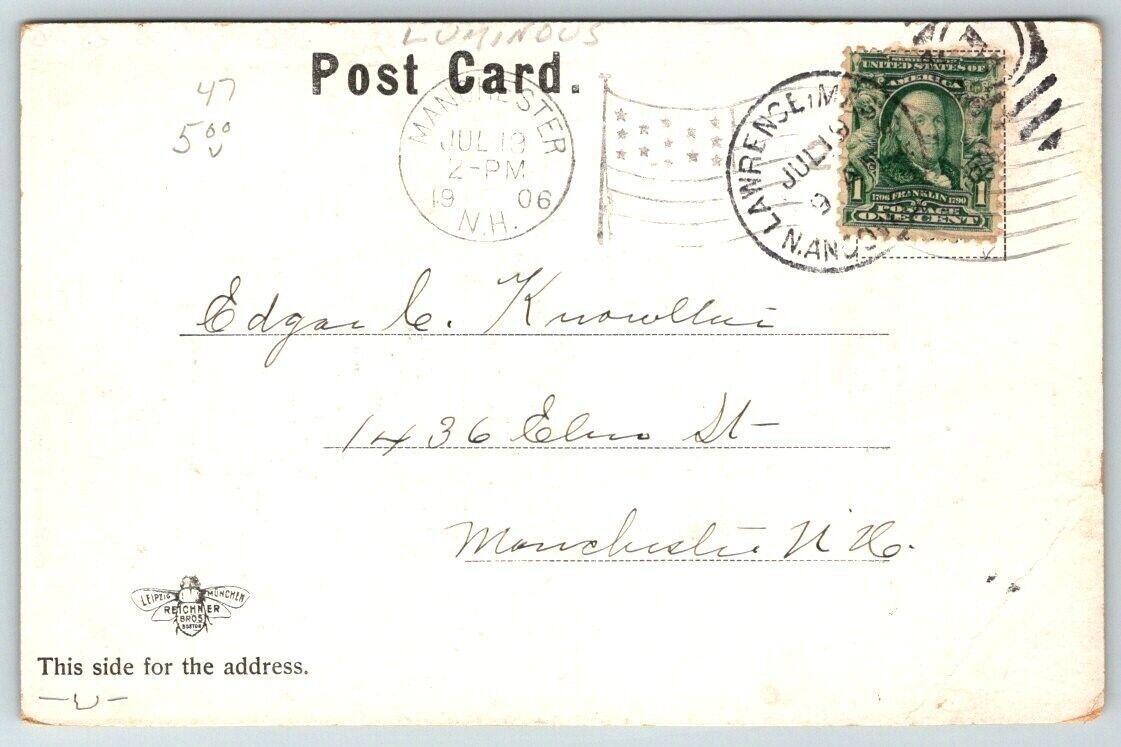 LUMINOUS
Post Card.
47
5 00
MANCHESTER
JUL 19
2-PM
19 06
N.H.
LAWRENCE, M
JUL 19
9
N. ANDOV
UNITED STATES OF
AMERICA
1 1706 FRANKLIN 1790 1
POSTAGE
ONE CENT
Edgar C.
1436 Elm St
Manchester N H.
LEIPZIG MÜNCHEN
REICHNER
BROS
BOSTON
This side for the address.